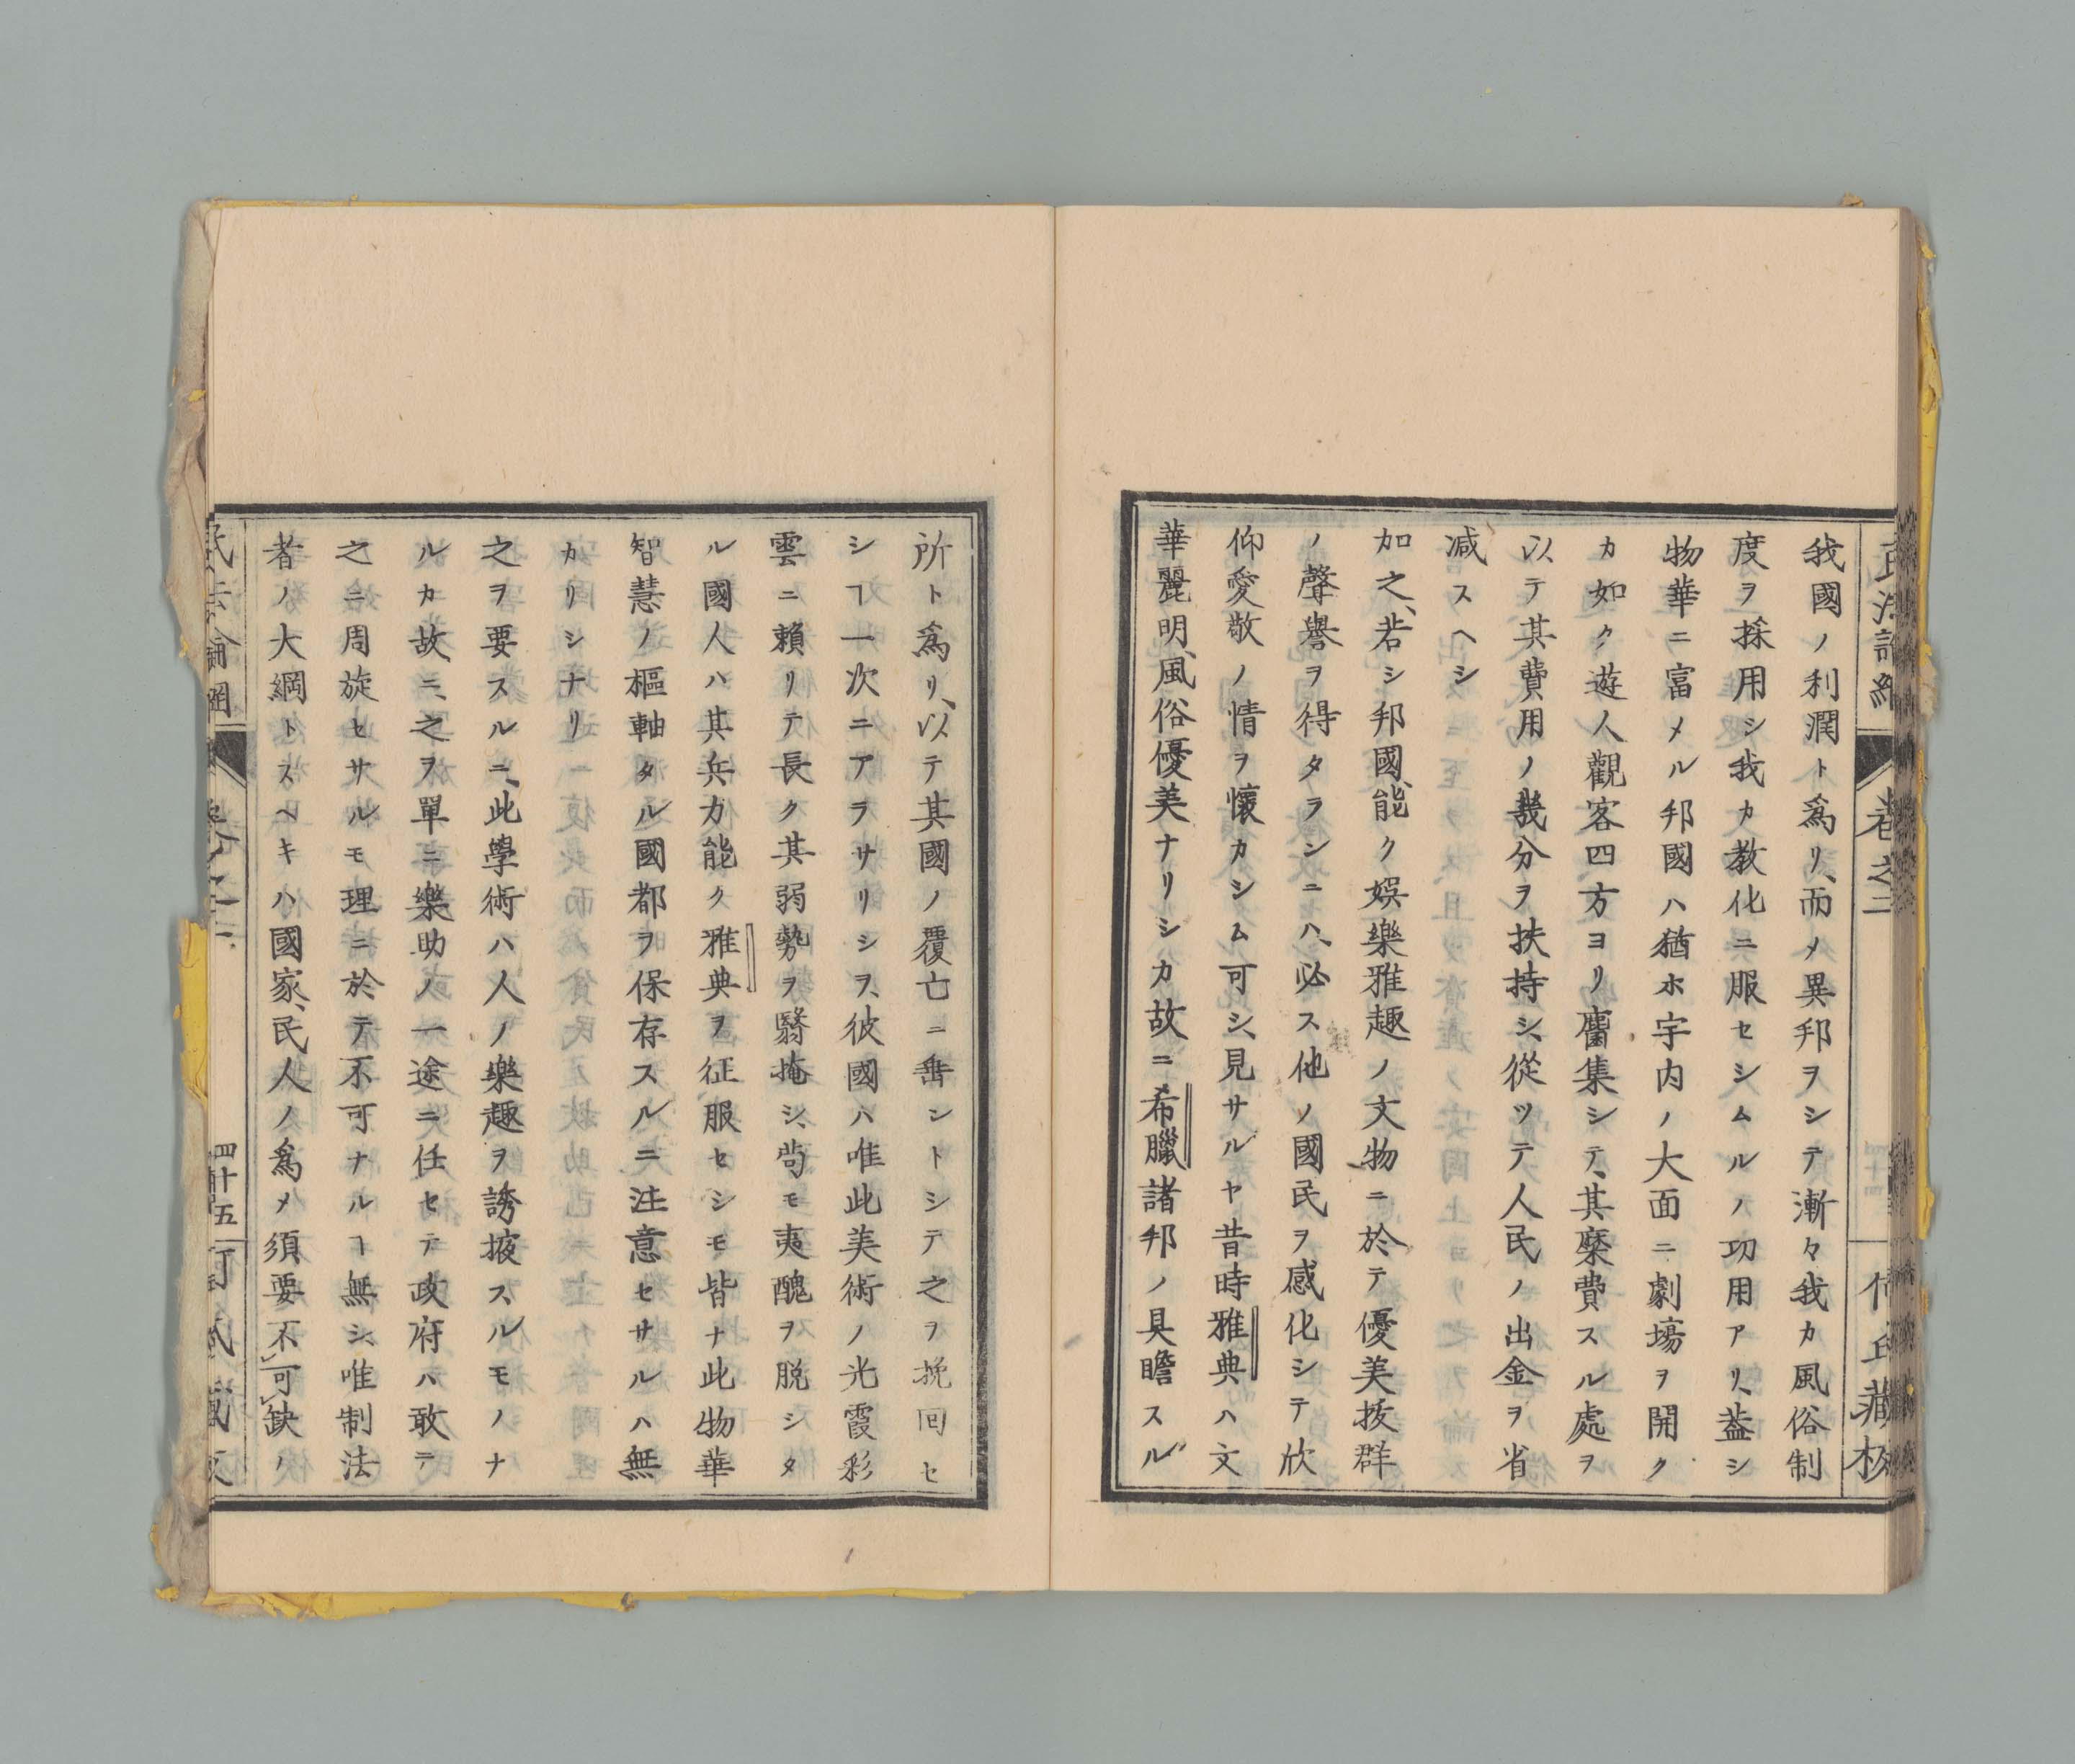 我國ノ利潤ト爲リ、而メ異邦ヲシテ漸々我カ風俗制
度ヲ採用シ我カ教化ニ服セシムルノ功用アリ、蓋シ
物華ニ富メル邦國ハ猶ホ宇内ノ大面ニ劇場ヲ開ク
カ如ク遊人觀客四方ヨリ麕集シテ、其糜費スル處ヲ
以テ其費用ノ幾分ヲ扶持シ、從ツテ人民ノ出金ヲ省
减スヘシ
加之、若シ邦國、能ク娯樂雅趣ノ文物ニ於テ優美拔群
ノ聲譽ヲ得タランニハ、必ス他ノ國民ヲ感化シテ欣
仰愛敬ノ情ヲ懷カシム可シ、見サルヤ昔時雅典ハ文
華麗明、風俗優美ナリシカ故ニ希臘諸邦ノ具瞻スル
所ト爲リ、以テ其國ノ覆亡ニ垂ントシテ之ヲ挽回セ
シヿ一次ニアラサリシヲ、彼國ハ唯此美術ノ光霞彩
雲ニ賴リテ長ク其弱勢ヲ翳掩シ、苟モ夷醜ヲ脱シタ
ル國人ハ其兵力能ク雅典ヲ征服セシモ皆ナ此物華
智慧ノ樞軸タル國都ヲ保存スルニ注意セサルハ無
カリシナリ
之ヲ要スルニ、此學術ハ人ノ樂趣ヲ誘掖スルモノナ
ルカ故ニ、之ヲ單ニ樂助ノ一途ニ任セテ政府ハ敢テ
之ニ周旋セサルモ理ニ於テ不可ナルヿ無シ、唯制法
者ノ大綱トスヘキハ國家、民人ノ爲メ須要不可缺ノ
卷之二
四十五